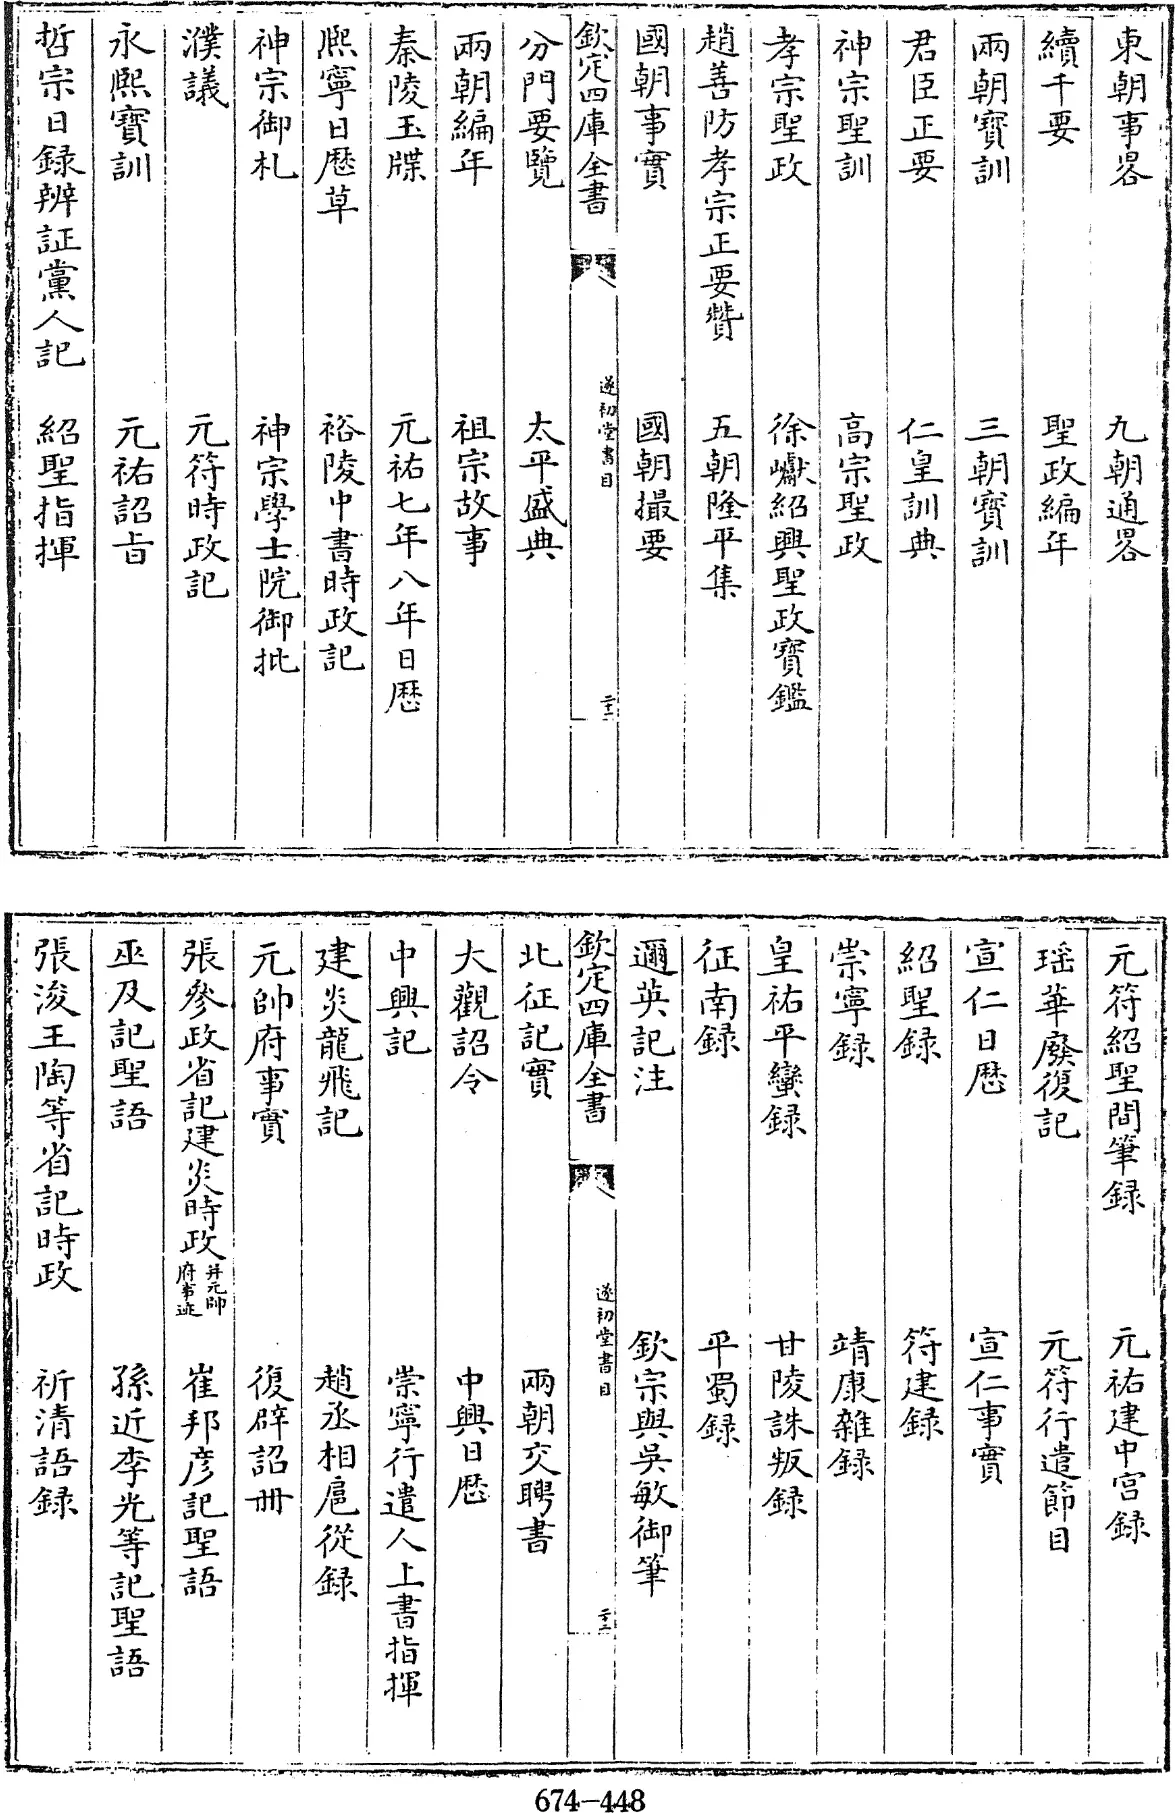 東朝事畧　九朝通畧
續千要　聖政編年
兩朝寶訓　三朝寶訓
君臣正要　仁皇訓典
神宗聖訓　高宗聖政
孝宗聖政　徐巘紹興聖政寶鑑
趙善防孝宗正要贊　五朝隆平集
國朝事實　國朝撮要
欽定四庫全書　遂初堂書目　二十二
分門要覽　太平盛典
兩朝編年　祖宗故事
秦陵玉牒　元祐七年八年日歷
熈寧日歷草　裕陵中書時政記
神宗御札　神宗學士院御批
濮議　元符時政記
永熈寶訓　元祐詔旨
哲宗日録辨証黨人記　紹聖指揮
元符紹聖間筆録　元祐建中宫録
瑶華廢復記　元符行遣節目
宣仁日歷　宣仁事實
紹聖録　符建録
崇寧録　靖康雜録
皇祐平蠻録　甘陵誅叛録
征南録　平蜀録
邇英記注　欽宗與吳敏御筆
欽定四庫全書　遂初堂書目
北征記實　兩朝交聘書
大觀詔令　中興日歷
中興記　崇寧行遣人上書指揮
建炎龍飛記　趙丞相扈從録
元帥府事實　復辟詔冊
張參政省記建炎時政并元帥府事迹　崔邦彦記聖語
巫及記聖語　孫近李光等記聖語
張浚王陶等省記時政　祈清語録
674-448